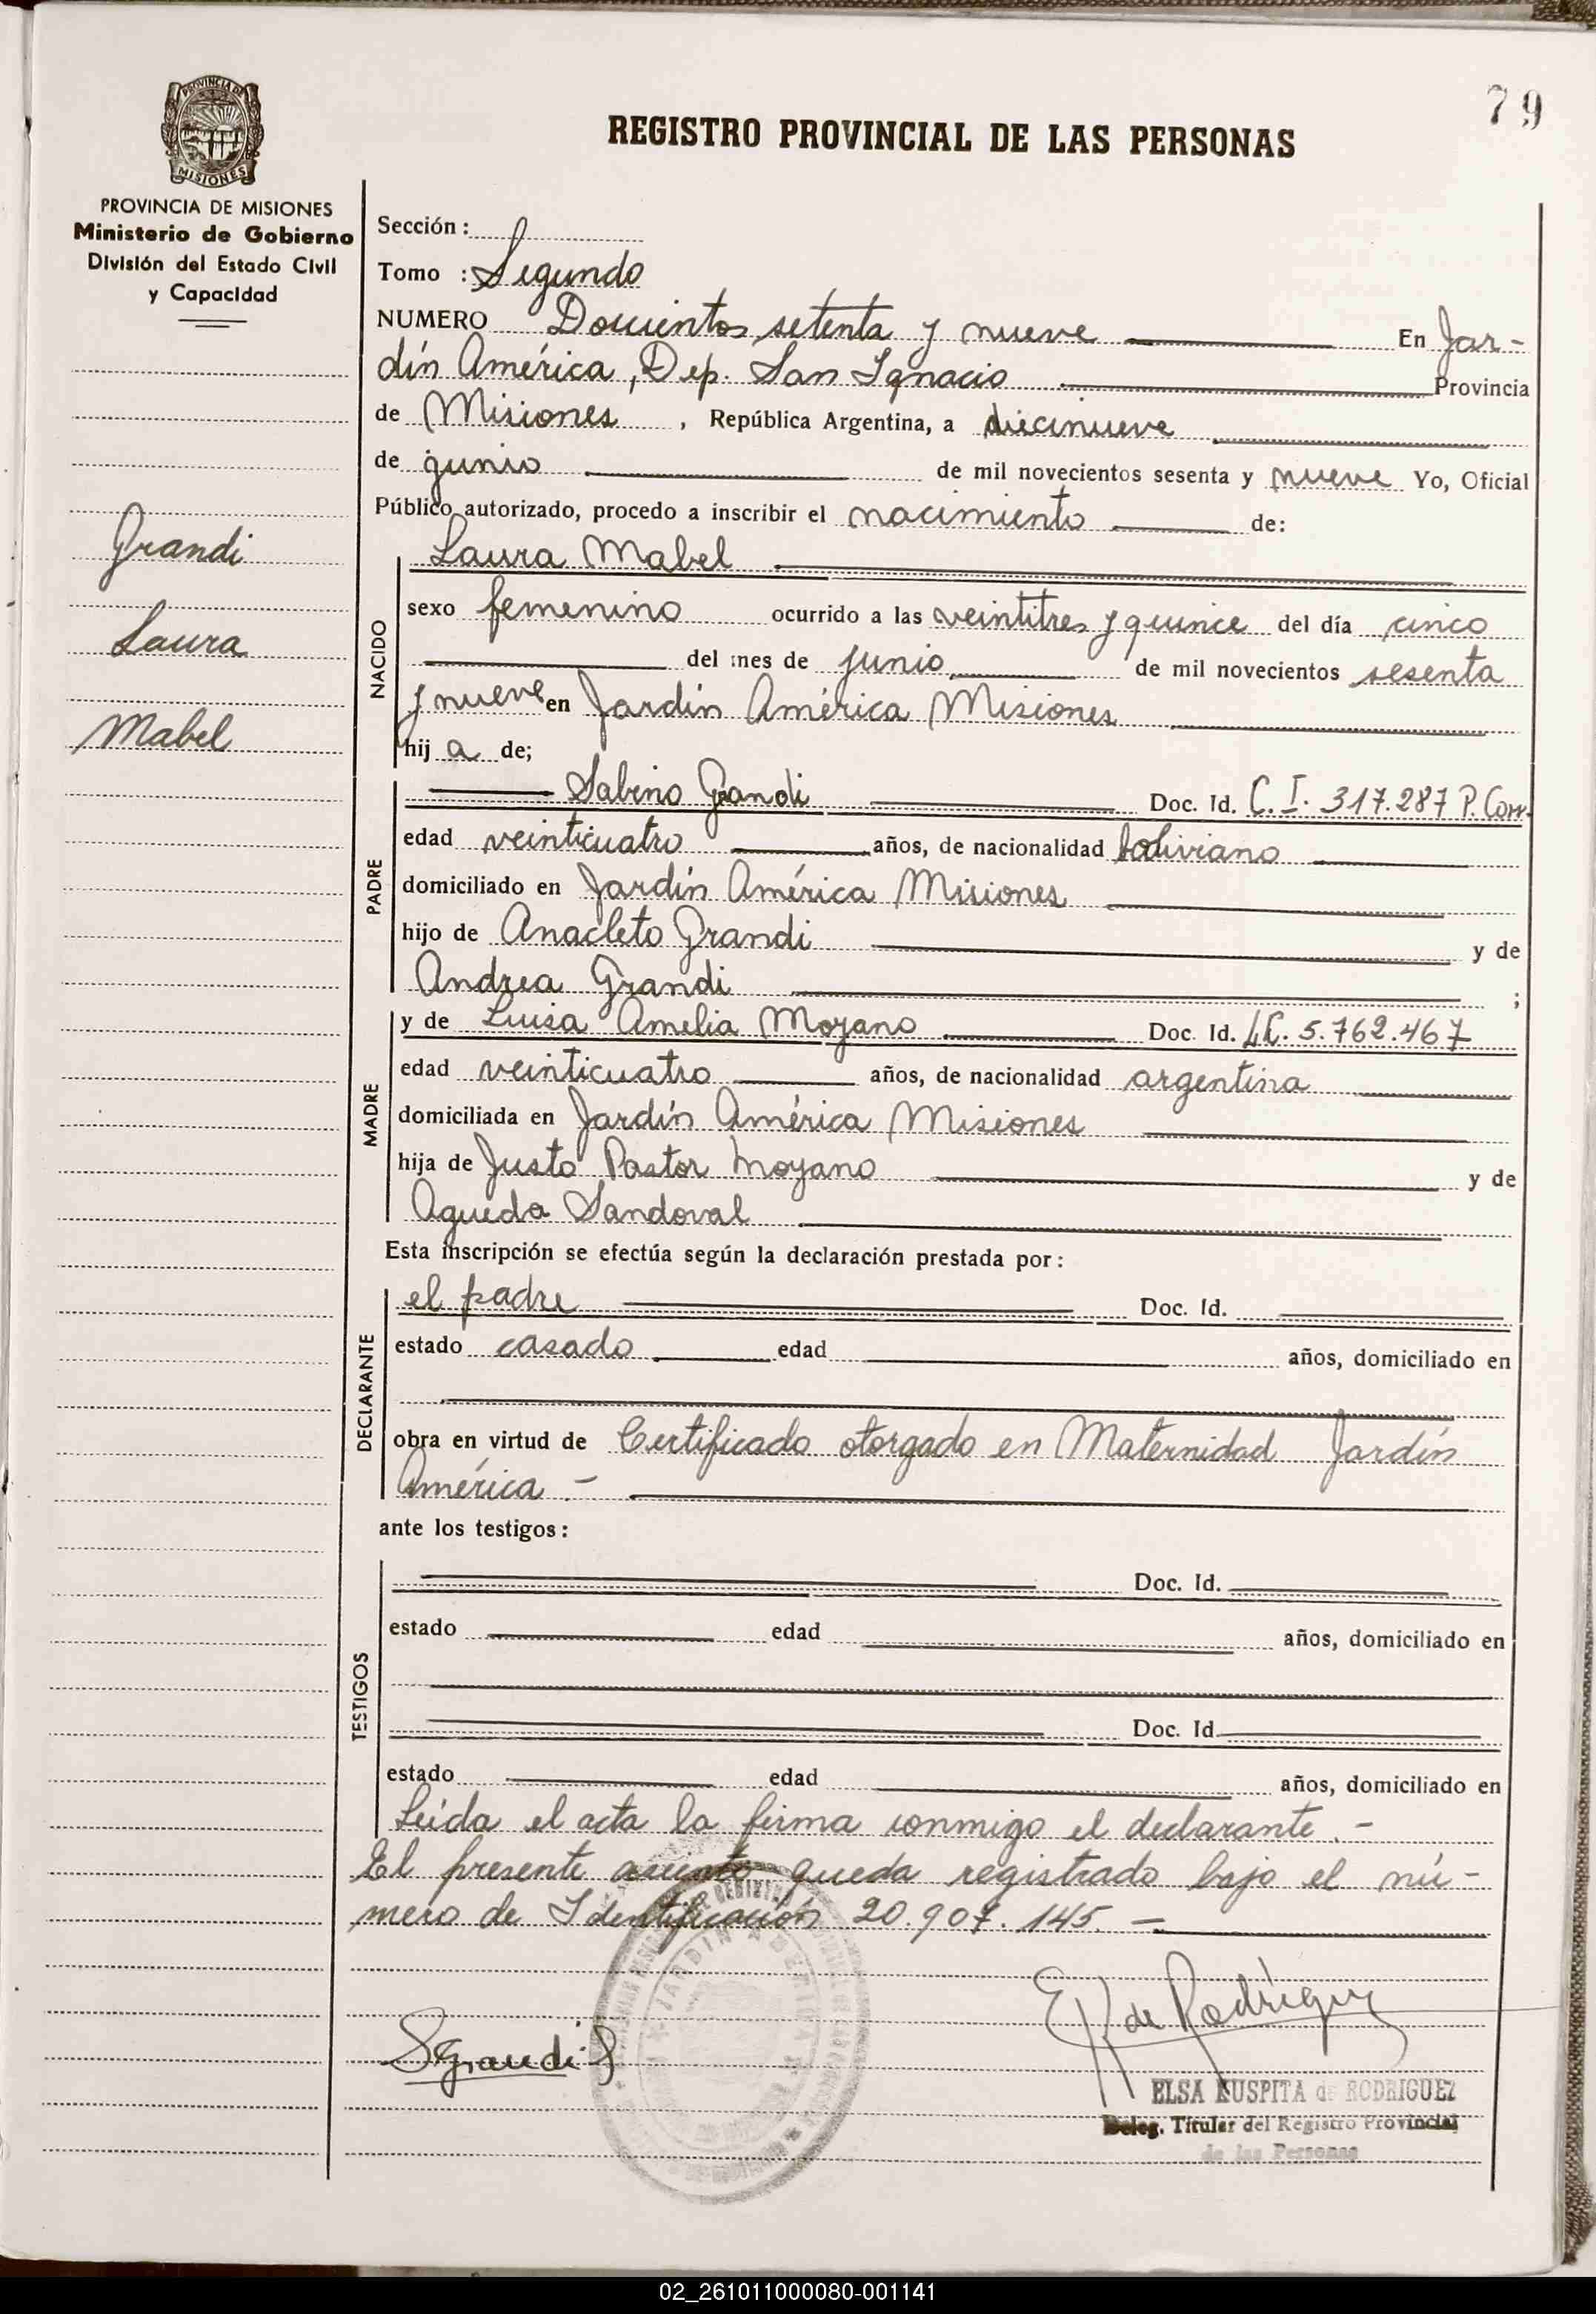 79
PROVINCIA DE
MISIONES
REGISTRO PROVINCIAL DE LAS PERSONAS
PROVINCIA DE MISIONES
Ministerio de Gobierno
División del Estado Civil
y Capacidad
Grandi
Laura
Mabel
Sección:
Tomo : Segundo
NUMERO Doscientos setenta y nueve En Jar-
dín América, Dep. San Ignacio Provincia
de Misiones, República Argentina, a diecinueve
de junio de mil novecientos sesenta y nueve Yo, Oficial
Público autorizado, procedo a inscribir el nacimiento de:
NACIDO
Laura Mabel
sexo femenino ocurrido a las veintitres y quince del día cinco
del mes de junio de mil novecientos sesenta
y nueve en Jardín América Misiones
hij a de;
PADRE
Sabino Grandi Doc. Id. C.I. 317.287 P. Corr.
edad veinticuatro años, de nacionalidad boliviano
domiciliado en Jardín América Misiones
hijo de Anacleto Grandi y de
Andrea Grandi ;
MADRE
y de Luisa Amelia Moyano Doc. Id. LC. 5.762.467
edad veinticuatro años, de nacionalidad argentina
domiciliada en Jardín América Misiones
hija de Justo Pastor Moyano y de
Agueda Sandoval
Esta inscripción se efectúa según la declaración prestada por:
DECLARANTE
el padre Doc. Id.
estado casado edad años, domiciliado en
obra en virtud de Certificado otorgado en Maternidad Jardín
América.-
ante los testigos:
TESTIGOS
Doc. Id.
estado edad años, domiciliado en
Doc. Id.
estado edad años, domiciliado en
Leída el acta la firma conmigo el declarante.-
El presente asiento queda registrado bajo el nú-
mero de Identificación 20.907.145.-
JARDIN AMERICA
E K de Rodríguez
SGrandi S
ELSA KUSPITA de RODRIGUEZ
Deleg. Titular del Registro Provincial
de las Personas
02_261011000080-001141